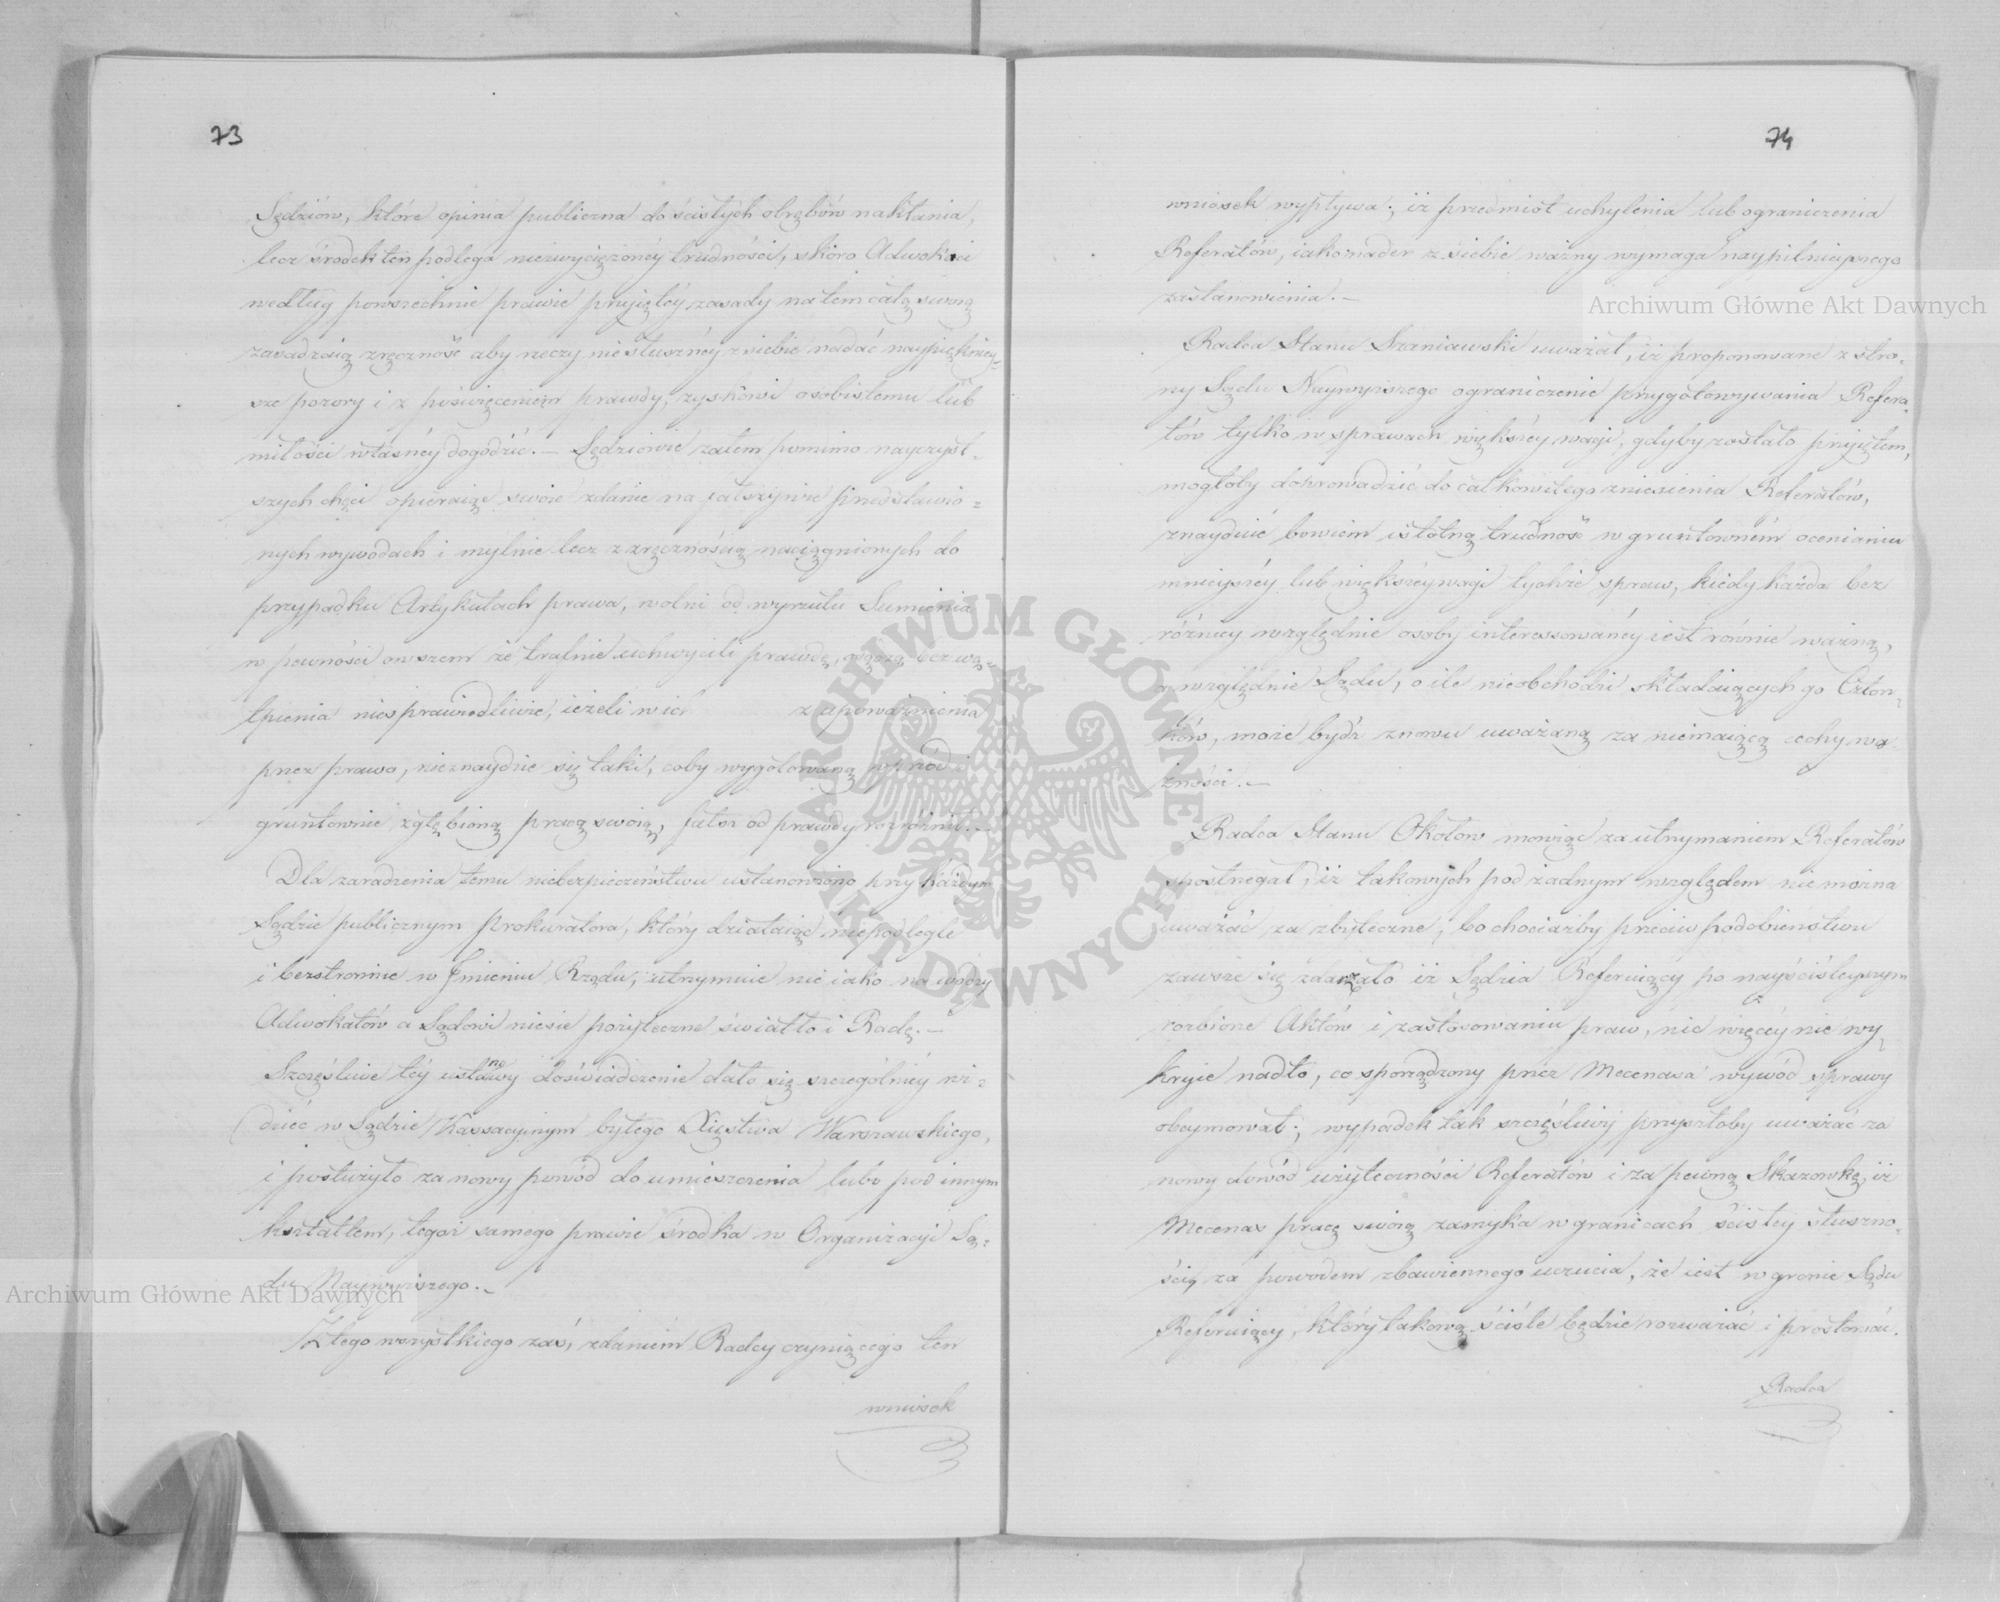 73
Sędziów, które opinia publiczna do ścisłych obrębów nakłania,
lecz środek ten podlega niezwyciężonéy trudności, skoro Adwokaci
według powszechnie prawie przyiętéy zasady na tem całą swoią
zasadzaią zręczność aby rzeczy niesłusznéy z siebie nadać naypiękniey-
sze pozory i z poświęceniem prawdy, zyskowi osobistemu lub
miłości własnéy dogodzić. — Sędziowie zatem pomimo nayczyst-
szych chęci opieraiąc swoie zdanie na fałszywie przedstawio-
nych wywodach i mylnie lecz z zręcznością naciągnionych do
przypadku Artykułach prawa, wolni od wyrzutu Sumienia
w pewności owszem że trafnie uchwycili prawdę, osądzą bez wą-
tpienia niesprawiedliwie, ieżeli w ich z upoważnienia
przez prawo, nieznaydzie się taki, coby wygotowaną wprzód i
gruntownie zgłębioną pracą swoią, fałsz od prawdy rozróżnił. —
Dla zaradzenia temu niebezpieczeństwu ustanowiono przy każdym
Sądzie publicznym Prokuratora, który działaiąc niepodlegle
i bezstronnie w Imieniu Rządu, utrzymuie nieiako na wodzy
Adwokatów a Sądowi niesie pożyteczne światło i Radę. —
Szczęśliwe téy ustawy doświadczenie dało się szczególniéy wi-
dzieć w Sądzie Kassacyinym byłego Xięstwa Warszawskiego,
i posłużyło za nowy powód do umieszczenia lubo pod innym
kształtem, tegoż samego prawie środka w Organizacyi Są-
du Naywyższego. —
Z tego wszystkiego zaś, zdaniem Radcy czyniącego ten
wniosek
74
wniosek wypływa; iż przedmiot uchylenia lub ograniczenia
Referatów, iako nader z siebie ważny wymaga naypilnieyszego
zastanowienia. —
Radca Stanu Szaniawski uważał, iż proponowane z stro-
ny Sądu Naywyższego ograniczenie przygotowywania Refera-
tów tylko w sprawach większéy wagi, gdyby zostało przyiętem,
mogłoby doprowadzić do całkowitego zniesienia Referatów,
znayduie bowiem istotną trudność w gruntowném ocenianiu
mnieyszéy lub większéy wagi tychże spraw, kiedy każda bez
różnicy względnie osoby interessowanéy iest równie ważną,
a względnie Sądu, o ile nieobchodzi składaiących go Człon-
ków, może bydź znowu uważaną za niemaiącą cechy wa-
żności. —
Radca Stanu Okołow mówiąc za utrzymaniem Referatów
spostrzegał, iż takowych pod żadnym względem nie można
uważać za zbyteczne, bo chociażby przeciw podobieństwu
zawsze się zdarzało iż Sędzia Referuiący po nayściśleyszym
rozbiorze Aktów i zastosowaniu praw, nic więcéy nie wy-
kryie nadto, co sporządzony przez Mecenasa wywód sprawy
obeymował; wypadek tak szczęśliwy przyszłoby uważać za
nowy dowód użyteczności Referatów i za pewną Skazowkę, iż
Mecenas pracę swoią zamyka w granicach ścisłey słuszno-
ści, za powodem zbawiennego uczucia, że iest w gronie Sądu
Referuiący, który takową ściśle będzie rozważać i prostować.
Radca
Archiwum Główne Akt Dawnych
Archiwum Główne Akt Dawnych
ARCHIWUM GŁÓWNE AKT DAWNYCH